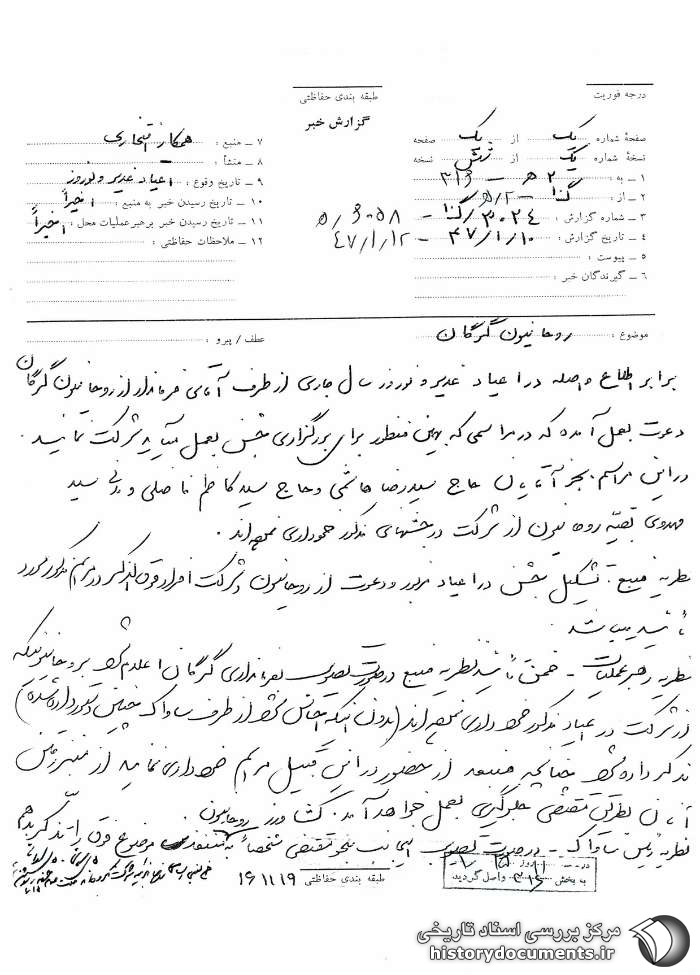 درجه فوریت
طبقه بندی حفاظتی
گزارش خبر
صفحهٔ شماره یک از یک صفحه
نسخهٔ شماره یک از شش نسخه
۱ ـ به : ۳۱۶
۲ ـ از :
۳ ـ شماره گزارش : ۳۰۲۴
۴ ـ تاریخ گزارش : ۴۷/۱/۱۰ ـ ۴۷/۱/۱۲
۵ ـ پیوست :
۶ ـ گیرندگان خبر :
۷ ـ منبع : همکار افتخاری
۸ ـ منشأ :
۹ ـ تاریخ وقوع : اعیاد غدیر و نوروز
۱۰ ـ تاریخ رسیدن خبر به منبع : اخیراً
۱۱ ـ تاریخ رسیدن خبر برهبر عملیات محل : اخیراً
۱۲ ـ ملاحظات حفاظتی :
موضوع : روحانیون گرگان
عطف / پیرو :
برابر اطلاع واصله در اعیاد غدیر و نوروز سال جاری از طرف آقای فرماندار از روحانیون گرگان
دعوت بعمل آمده که در مراسمی که بهمین منظور برای برگزاری جشن بعمل میآید شرکت نمایند .
در این مراسم بجز آقایان حاج سیدرضا هاشمی و حاج سید کاظم فاضلی و سید
مهدوی بقیه روحانیون از شرکت در جشنهای مذکور خودداری نموده‌اند .
نظریه منبع : تشکیل جشن در اعیاد مزبور و دعوت از روحانیون و شرکت افراد فوق‌الذکر در مراسم مذکور مورد
تأیید میباشد .
نظریه رهبر عملیات ـ ضمن تأیید نظریه منبع در صورت تصویب بفرمانداری گرگان اعلام شود بروحانیونیکه
از شرکت در اعیاد مذکور خودداری نموده‌اند (بدون اینکه احساس شود از طرف ساواک چنین دستور داده شده)
تذکر داده شود چنانچه منبعد از حضور در این قبیل مراسم خودداری نمایند از منبر رفتن
آنان بطریق مقتضی جلوگیری بعمل خواهد آمد . کشاورز
نظریه رئیس ساواک ـ در صورت تصویب اینجانب بنحو مقتضی شخصاً به روحانیون موضوع فوق را تذکر بدهم
طبقه بندی حفاظتی
۱۶ ۱۱ ۱۹
در روز
به بخش ۳۱۶ واصل گردید
مرکز بررسی اسناد تاریخی
historydocuments.ir